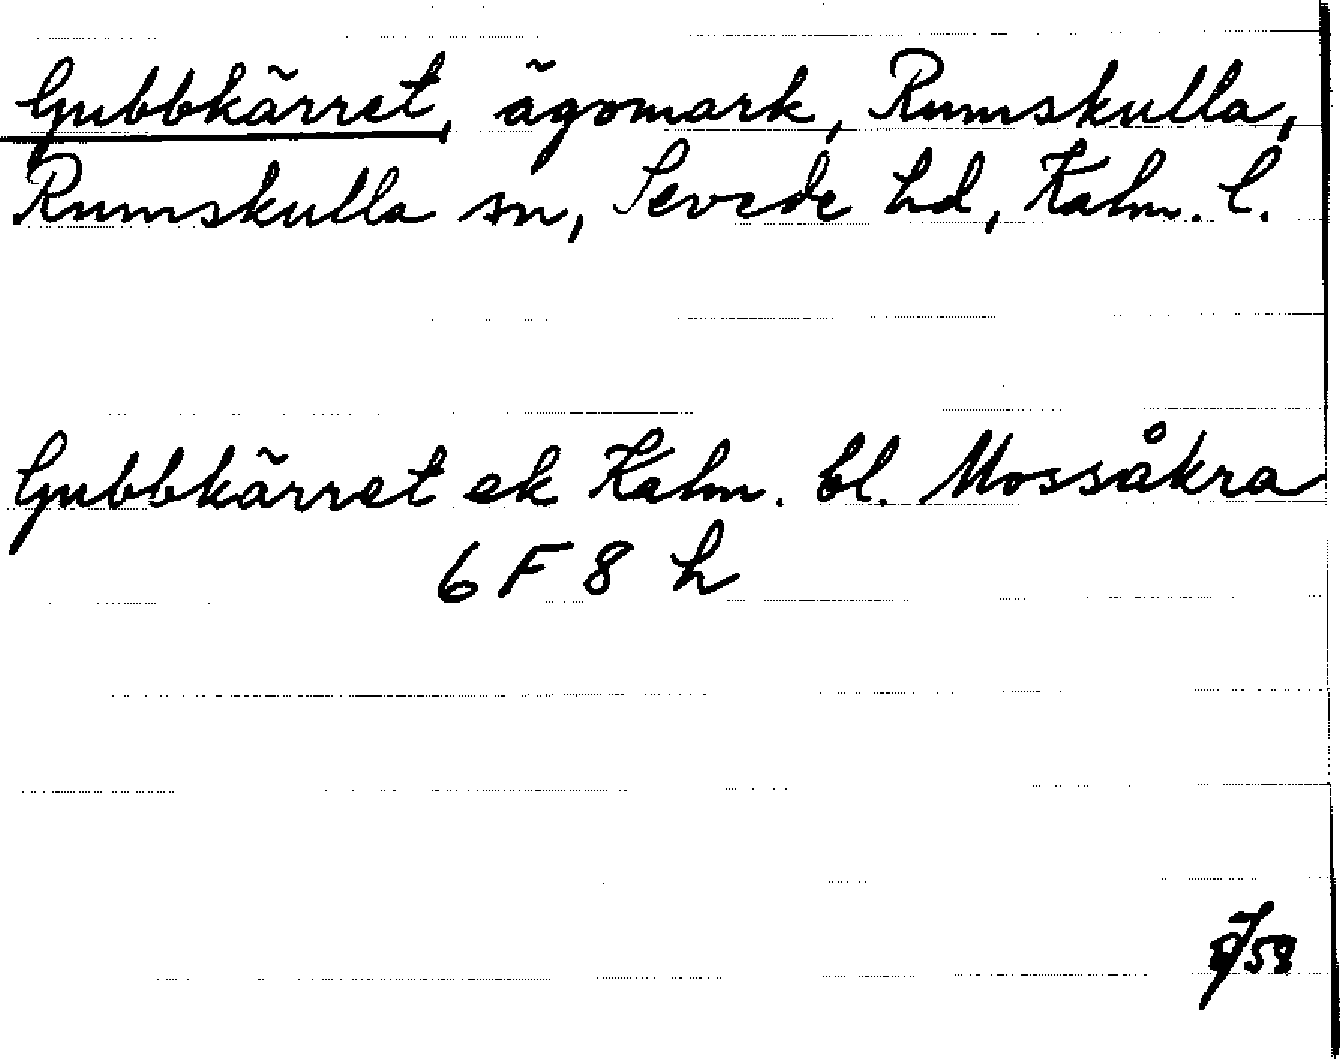 Gubbkärret, ägomark, Rumskulla,
Rumskulla sn, Sevede hd, Kalm. l.
Gubbkärret ek Kalm. bl. Mossåkra
6 F 8 h